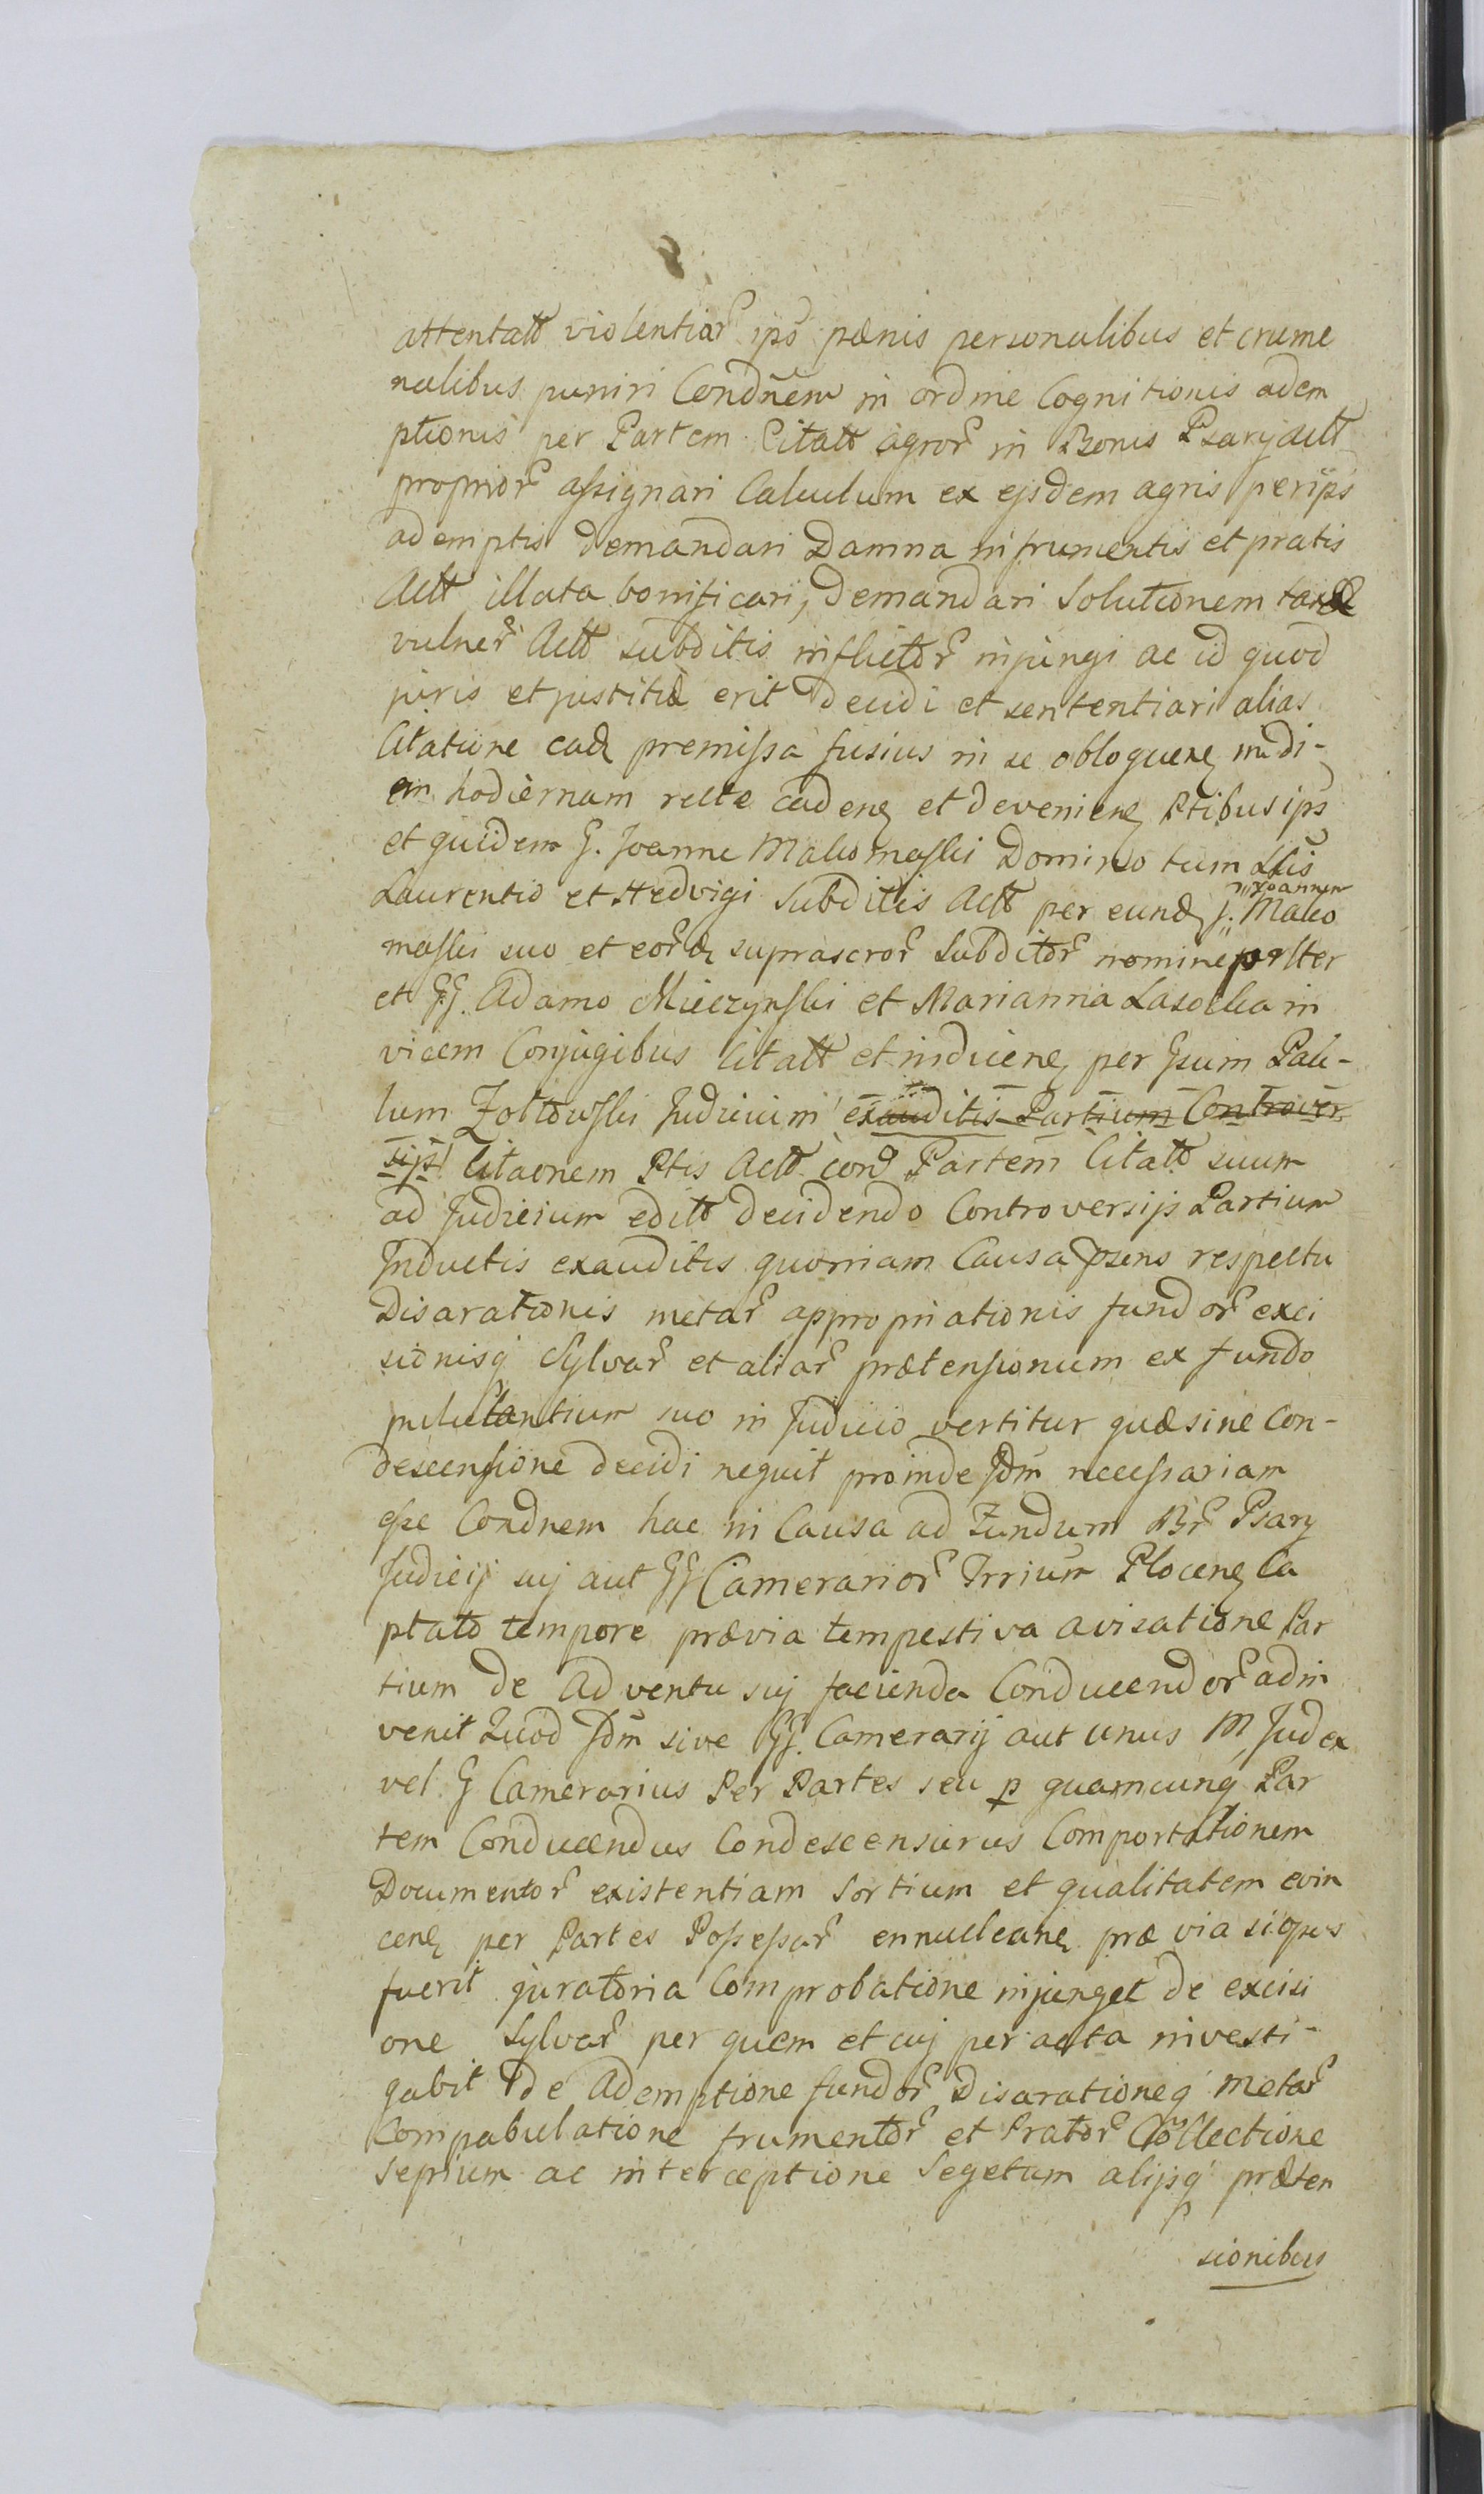 attentatt violentiar ips pænis personalibus et crume
nalibus puniri Condnem in ordine Cognitionis adem
ptionis per Partem Citatt agror in Bonis Psary Actt
proprior assignari Calculum ex ejsdem agris per ips
ademptis demandari Damna in frumentis et pratis
Actt illata bonificari, demandari Solutionem taxæ
vulner Actt subditis inflictor injungi ac id quod
juris et justitiæ erit decidi et sententiari alias
Citatione eadq premissa fusius in se obloquenq in di-
em hodiernam recte cadenq et devenienq Ptibus ips
et quidem G. Joanne Malcomaski Domino tum Llis
Laurentio et Hedvigi Subditis Actt per eundq G. Joannem Malco
maski suo et eordq suprascror Subditor nomine prster
et GG. Adamo Mieczynski et Marianna Lasocka in
vicem Conjugibus Citatt et inducenq per Gsum Pau-
lum Zołtowski Judicium exauditis Partium Controver
sijs Citaonem Ptis Actt con Partem Citatt suum
ad Judicium editt decidendo Controversijs Partium
Inductis exauditis quoniam Causa psens respectu
Disarationis metar appropriationis fundor exci
sionisq Sylvar et aliar prætensionum ex fundo
pululantium suo in Judicio vertitur quæ sine Con-
descensione decidi nequit proinde Jdm necessariam
esse Condnem hac in Causa ad Fundum Br Psary
Judicij suj aut GG Camerarior Trrium Plocenq Ca
ptato tempore prævia tempestiva avisatione Par
tium de Adventu suj facienda Conducendor adin
venit Quod Jdm sive GG. Camerarij aut unus M Judex
vel G Camerarius Per Partes seu p quamcunq Par
tem Conducendus Condescensurus Comportationem
Documentor existentiam Sortium et qualitatem evin
cenq per Partes Possessar ennucleanq prævia si opus
fuerit juratoria Comprobatione injunget de excisi
one Sylvar per quem et cuj peracta investi-
gabit de Ademptione fundor Disarationeq metar
Compabulatione frumentor et Prator Collectione
Sepium ac interceptione Segetum alijsq præten
sionibus